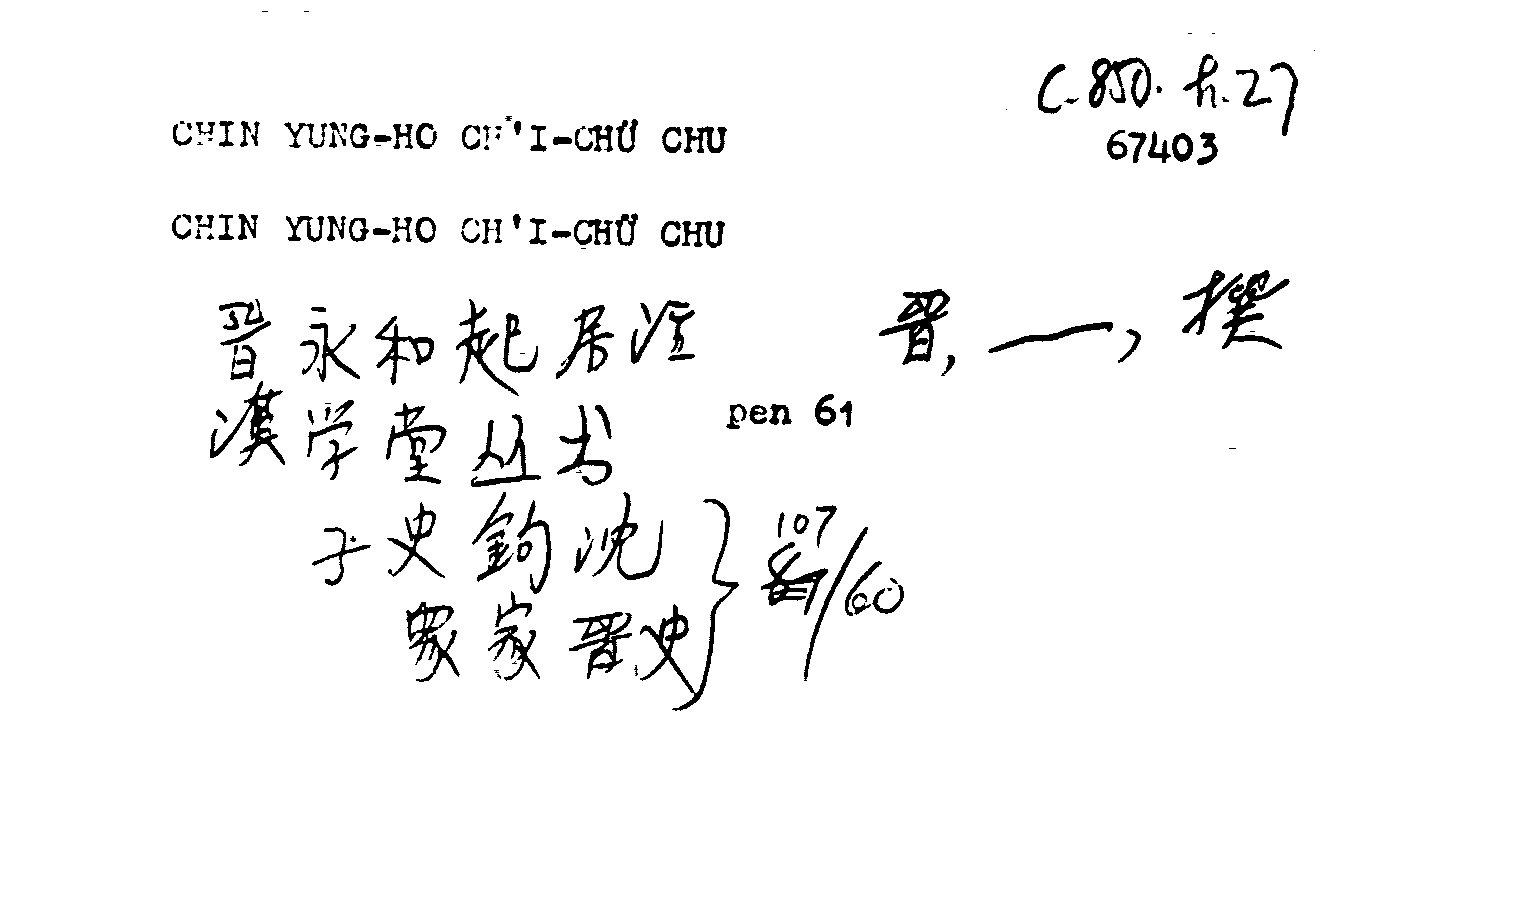 C.850.h.27
CHIN YUNG-HO CH'I-CHÜ CHU
67403
CHIN YUNG-HO CH'I-CHÜ CHU
晋永和起居注 晋, 一, 撰
漢学堂丛书 pen 61
子史鉤沈
107
/60
眾家晋史